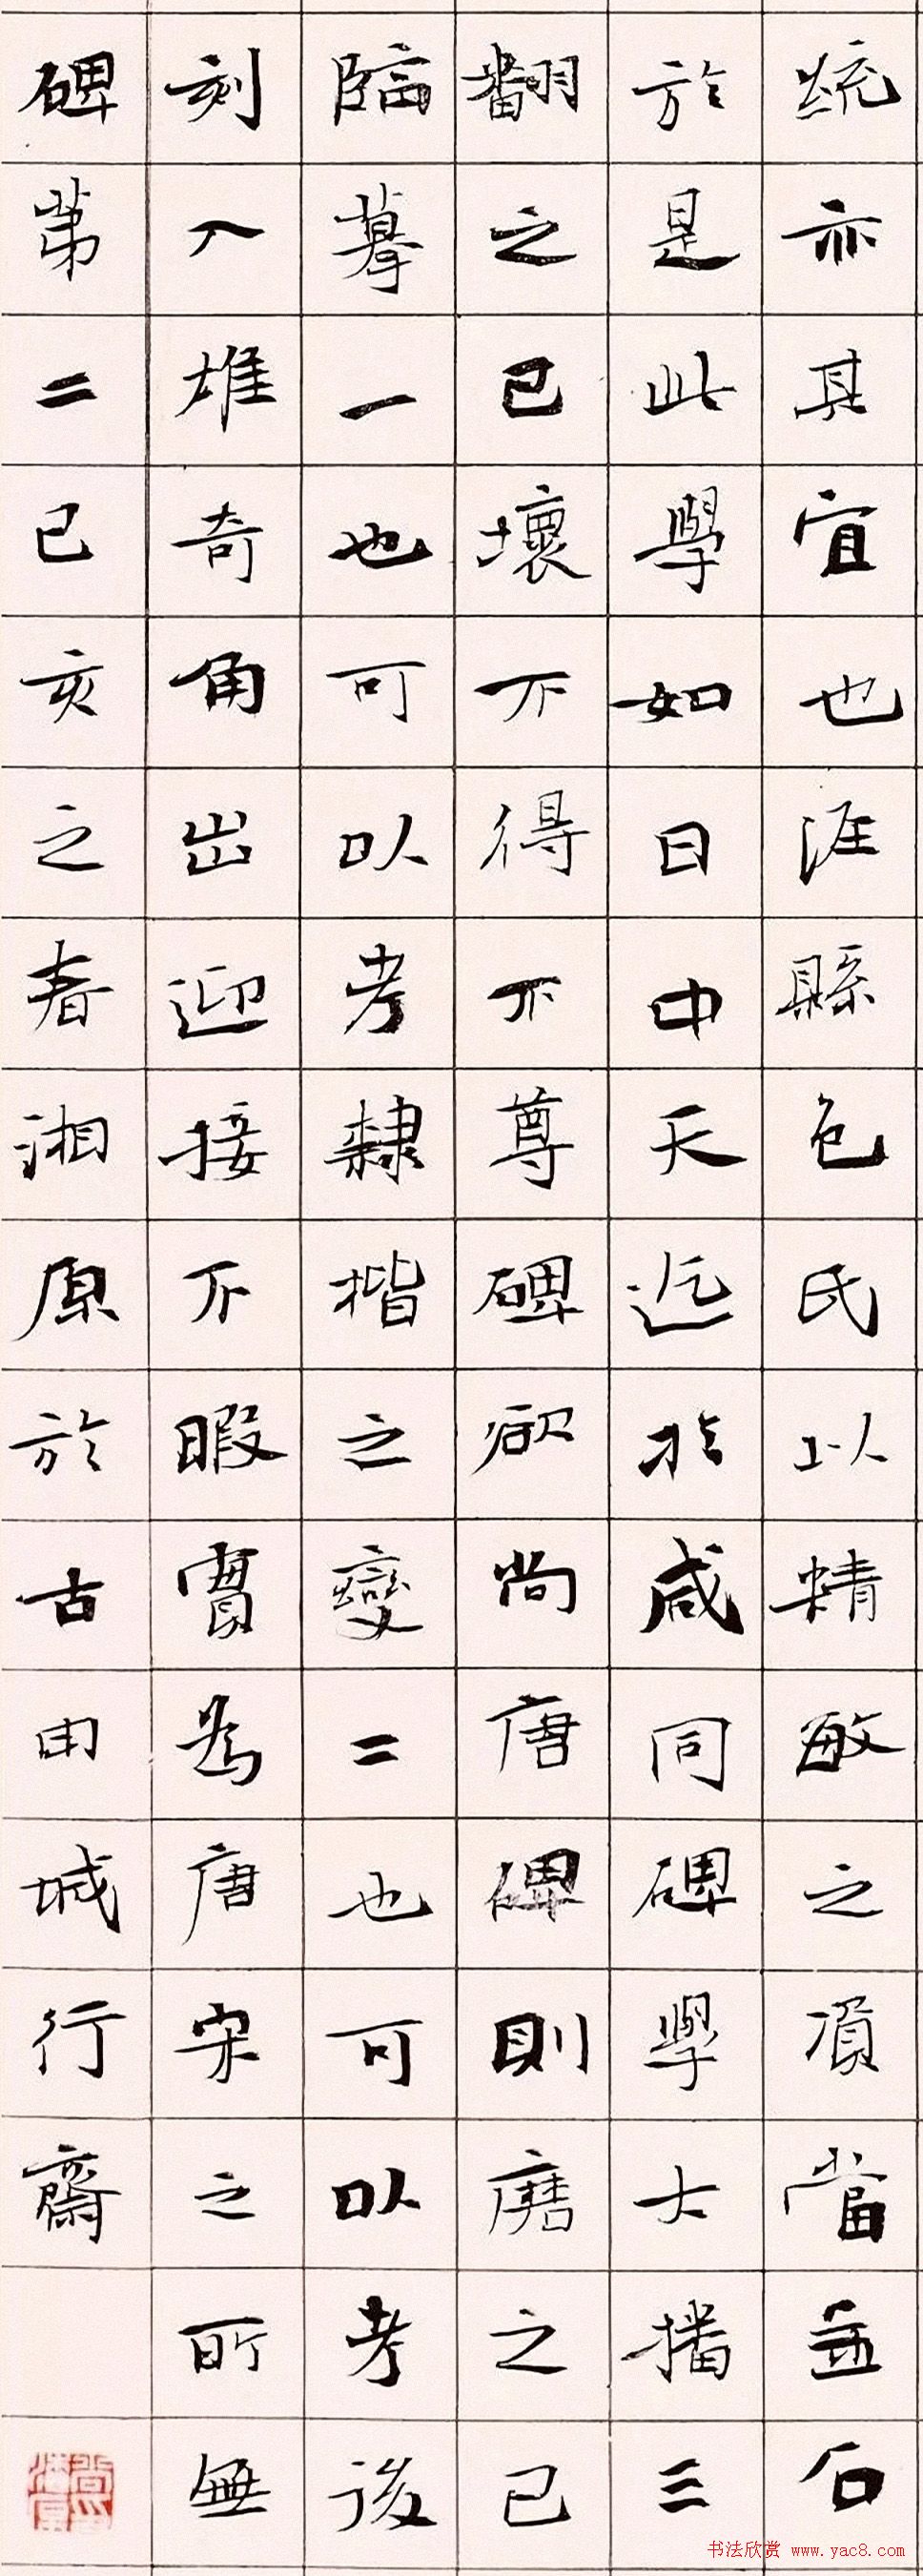 統亦其宜也涯縣包氏以精敏之資當並石
於是此學如日中天迄於咸同碑學士播三
翻之已壞不得不尊碑欲尚唐碑則磨之已
臨摹一也可以考隸楷之變二也可以考後
刻入雄奇角出迎接不暇實為唐宋之所無
碑第二己亥之春湘原於古由城行齋
书法欣赏 www.yac8.com